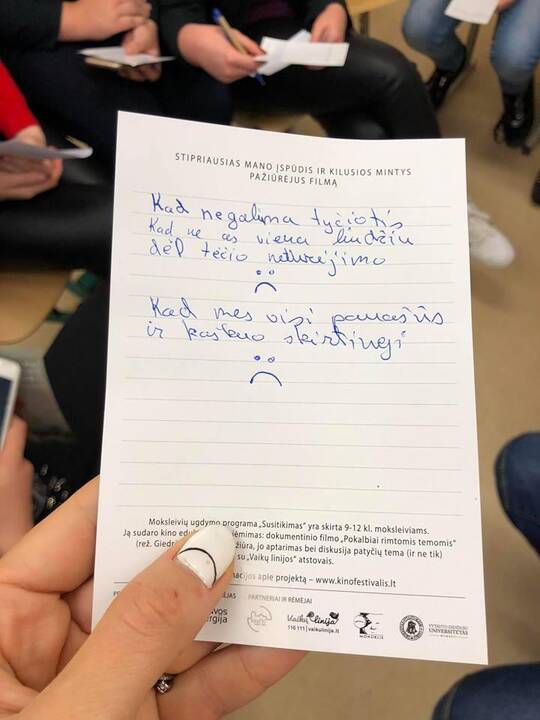 STIPRIAUSIAS MANO ĮSPŪDIS IR KILUSIOS MINTYS
PAŽIŪRĖJUS FILMĄ
Kad negalima tyčiotis
Kad ne aš viena liūdžiu
dėl tėčio neturėjimo
Kad mes visi panašūs
ir kažkuo skirtingi
Moksleivių ugdymo programa „Susitikimas" yra skirta 9-12 kl. moksleiviams.
Ją sudaro kino filmo „Pokalbiai rimtomis temomis"
(rež. jo aptarimas bei diskusija patyčių tema (ir ne tik)
su „Vaikų linijos" atstovais.
apie projektą – www.kinofestivalis.lt
PARTNERIAI IR RĖMĖJAI
Vaikų linija
116 111 | vaikulinija.lt
VYTAUTO DIDŽIOJO
UNIVERSITETAS